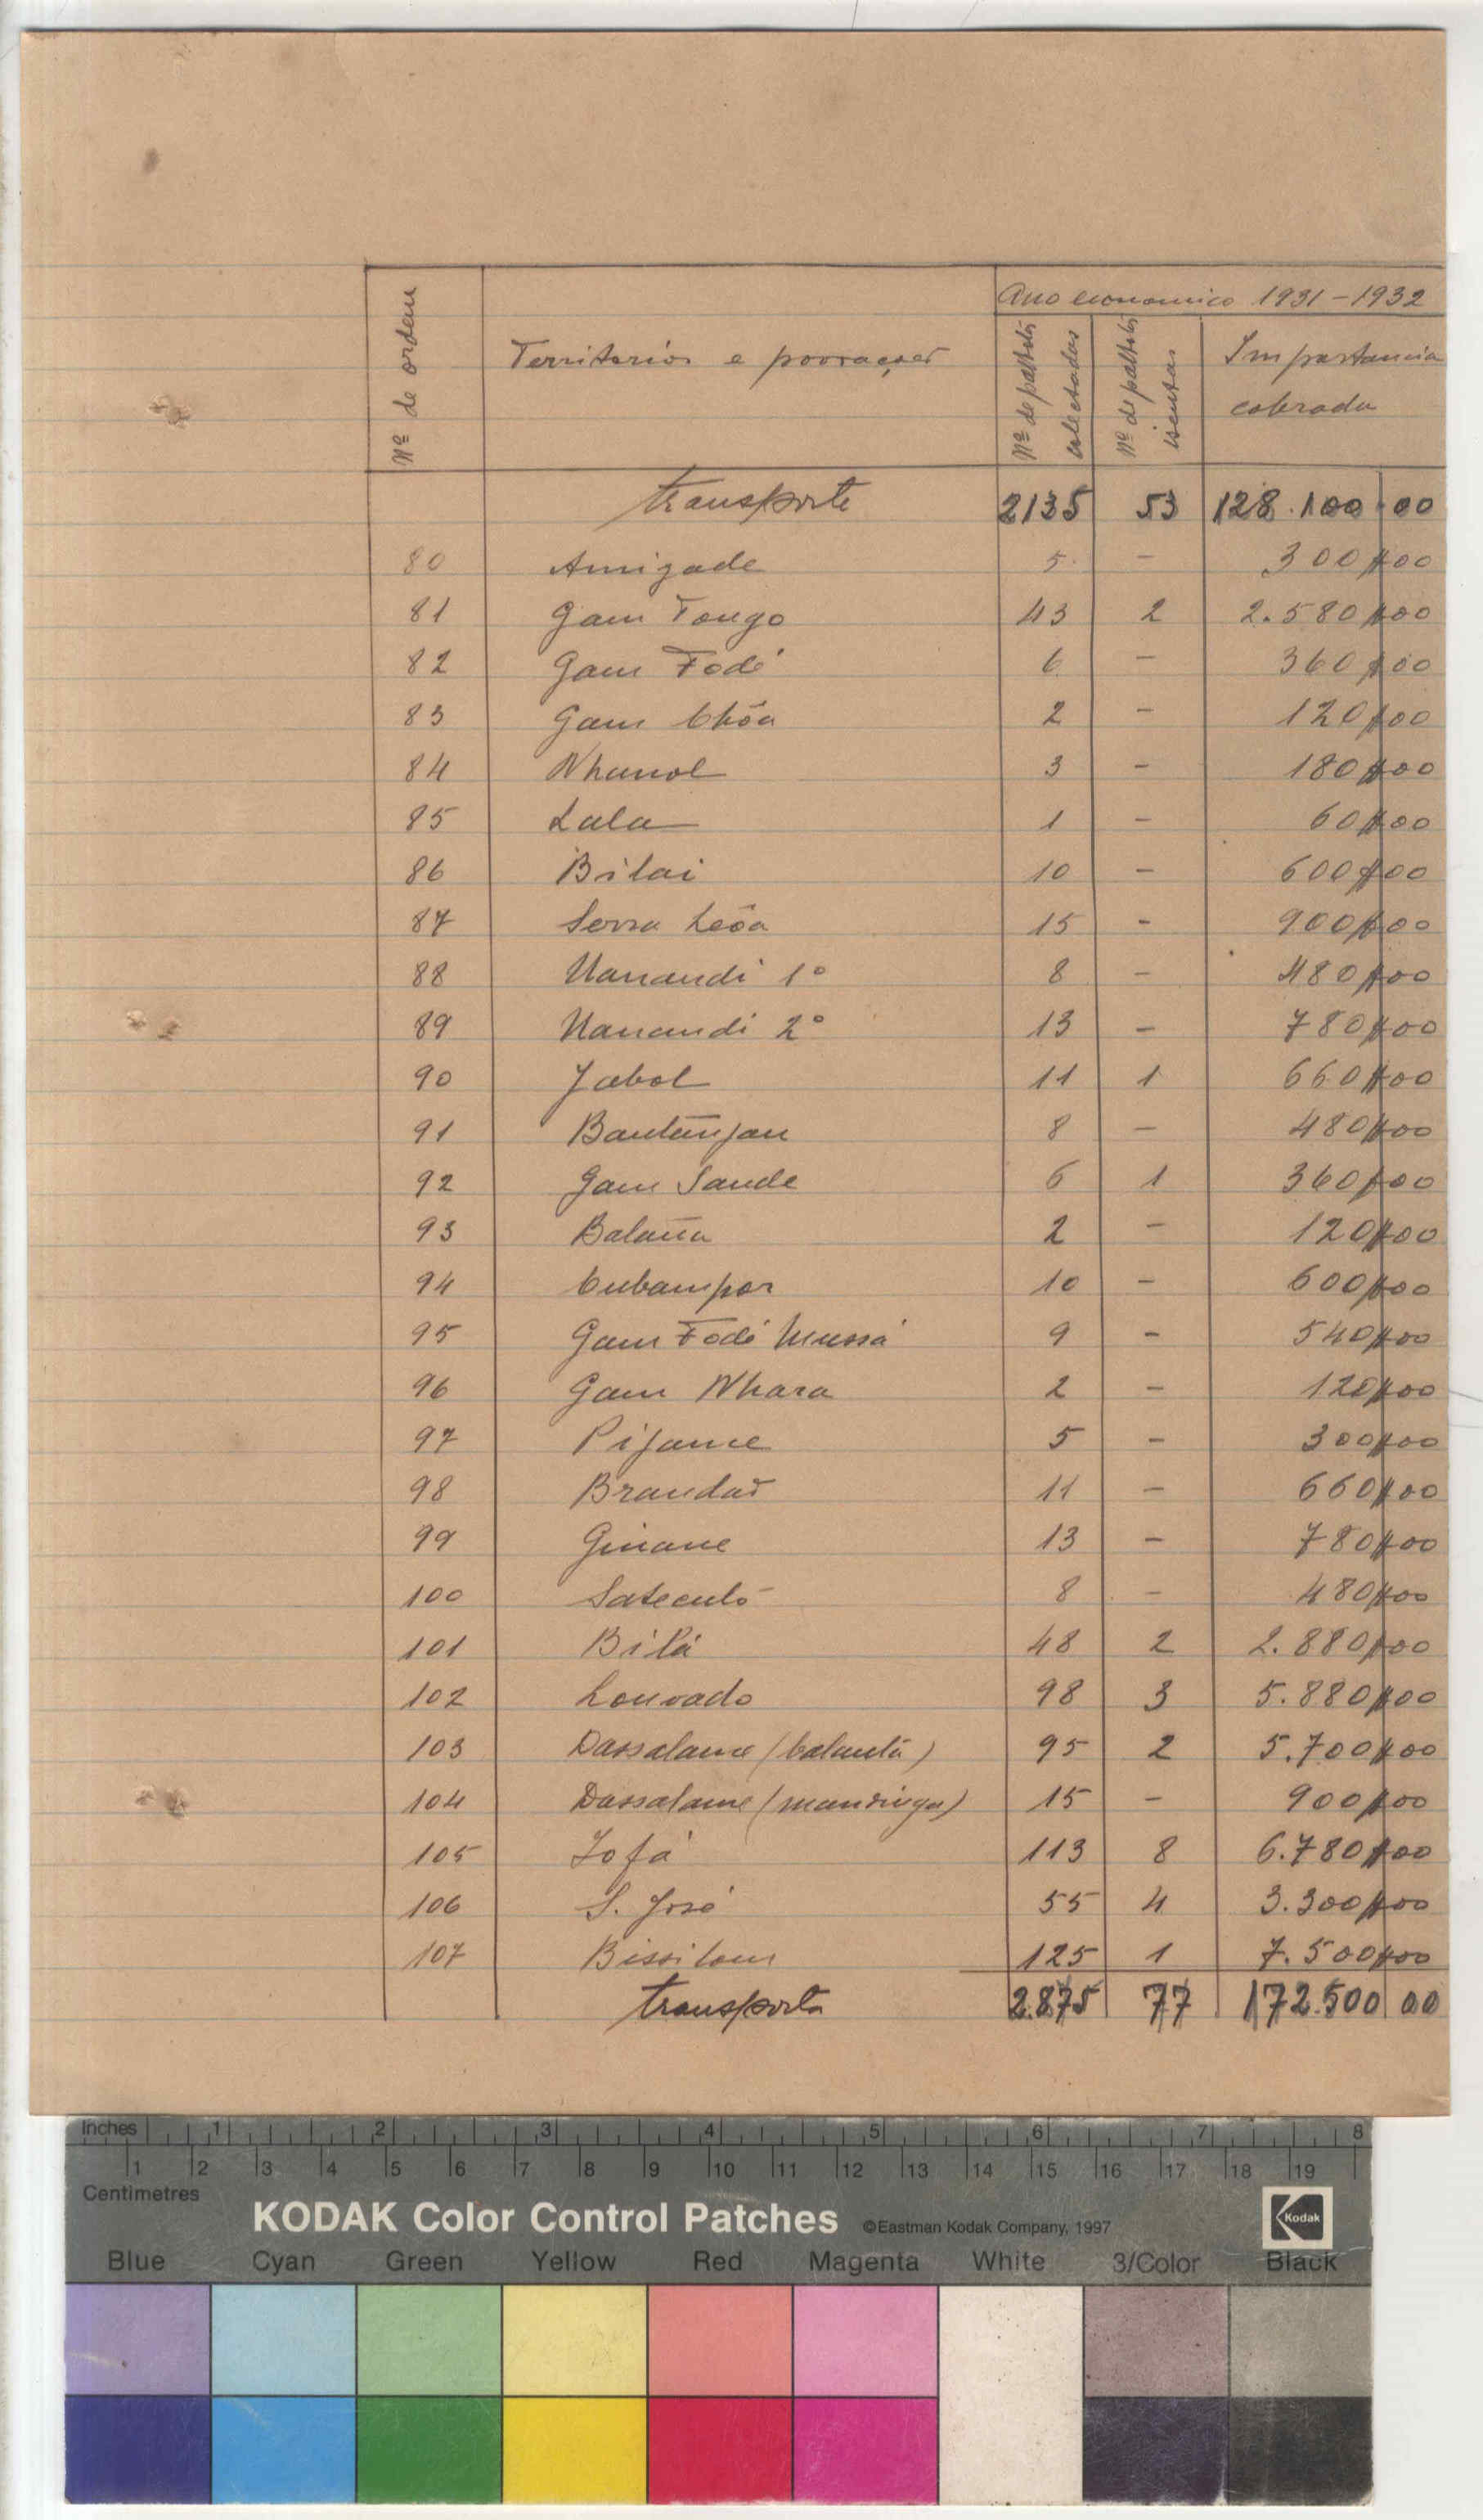 Ano economico 1931-1932
Nº de ordem Territorios e povoações Nº de palhotas colectadas Nº de palhotas isentas Importancia cobrada
Transporte 2135 53 128.100 00
80 Amizade 5 - 300$00
81 Gam Tongo 43 2 2.580$00
82 Gam Fodé 6 - 360$00
83 Gam Chôa 2 - 120$00
84 Nhanol 3 - 180$00
85 Lala 1 - 60$00
86 Bilai 10 - 600$00
87 Serra Leôa 15 - 900$00
88 Uanandi 1º 8 - 480$00
89 Uanandi 2º 13 - 780$00
90 Jabol 11 1 660$00
91 Bantanjan 8 - 480$00
92 Gam Sande 6 1 360$00
93 2 - 120$00
94 Cubampor 10 - 600$00
95 Gam Fodé Mussá 9 - 540$00
96 Gam Nhara 2 - 120$00
97 Pijame 5 - 300$00
98 Brandão 11 - 660$00
99 Ginane 13 - 780$00
100 Satecutó 8 - 480$00
101 Bilá 48 2 2.880$00
102 Louvado 98 3 5.880$00
103 Dassalame (balanta) 95 2 5.700$00
104 Dassalame (mandinga) 15 - 900$00
105 Jofá 113 8 6.780$00
106 S. José 55 4 3.300$00
107 Bissilom 125 1 7.500$00
Transporta 2.875 77 172.500 00
Inches 1 2 3 4 5 6 7 8
1 2 3 4 5 6 7 8 9 10 11 12 13 14 15 16 17 18 19
Centimetres
KODAK Color Control Patches ©Eastman Kodak Company, 1997 Kodak
Blue Cyan Green Yellow Red Magenta White 3/Color Black